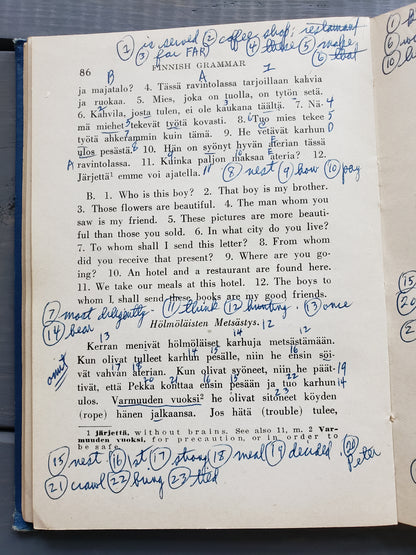 ① is served ② coffee shop; restaurant
③ far FAR) ④ these ⑤ make
⑥ that
86 FINNISH GRAMMAR
ja majatalo? 4. Tässä ravintolassa tarjoillaan kahvia
ja ruokaa. 5. Mies, joka on tuolla, on tytön setä.
6. Kahvila, josta tulen, ei ole kaukana täältä. 7. Nä-
mä miehet tekevät työtä kovasti. 8. Tuo mies tekee
työtä ahkerammin kuin tämä. 9. He vetävät karhun
ulos pesästä. 10. Hän on syönyt hyvän aterian tässä
ravintolassa. 11. Kuinka paljon maksaa ateria? 12.
Järjettä¹ emme voi ajatella.
⑧ nest ⑨ how ⑩ pay
B. 1. Who is this boy? 2. That boy is my brother.
3. Those flowers are beautiful. 4. The man whom you
saw is my friend. 5. These pictures are more beauti-
ful than those you sold. 6. In what city do you live?
7. To whom shall I send this letter? 8. From whom
did you receive that present? 9. Where are you go-
ing? 10. An hotel and a restaurant are found here.
11. We take our meals at this hotel. 12. The boys to
whom I shall send these books are my good friends.
⑦ most diligently ⑪ think ⑫ hunting ⑬ once
⑭ bear
Hölmöläisten Metsästys. 12
Kerran menivät hölmöläiset karhuja metsästämään.
Kun olivat tulleet karhun pesälle, niin he ensin söi-
vät vahvan aterian. Kun olivat syöneet, niin he päät-
tivät, että Pekka kohttaa ensin pesään ja tuo karhun
ulos. Varmuuden vuoksi² he olivat sitoneet köyden
(rope) hänen jalkaansa. Jos hätä (trouble) tulee,
omit
1 Järjettä, without brains. See also 11, m. 2 Var-
muuden vuoksi, for precaution, or in order to
be safe.
⑮ nest ⑯ 1st ⑰ strong ⑱ meal ⑲ decided ⑳
Peter
㉑ crawl ㉒ bring ㉓ tied